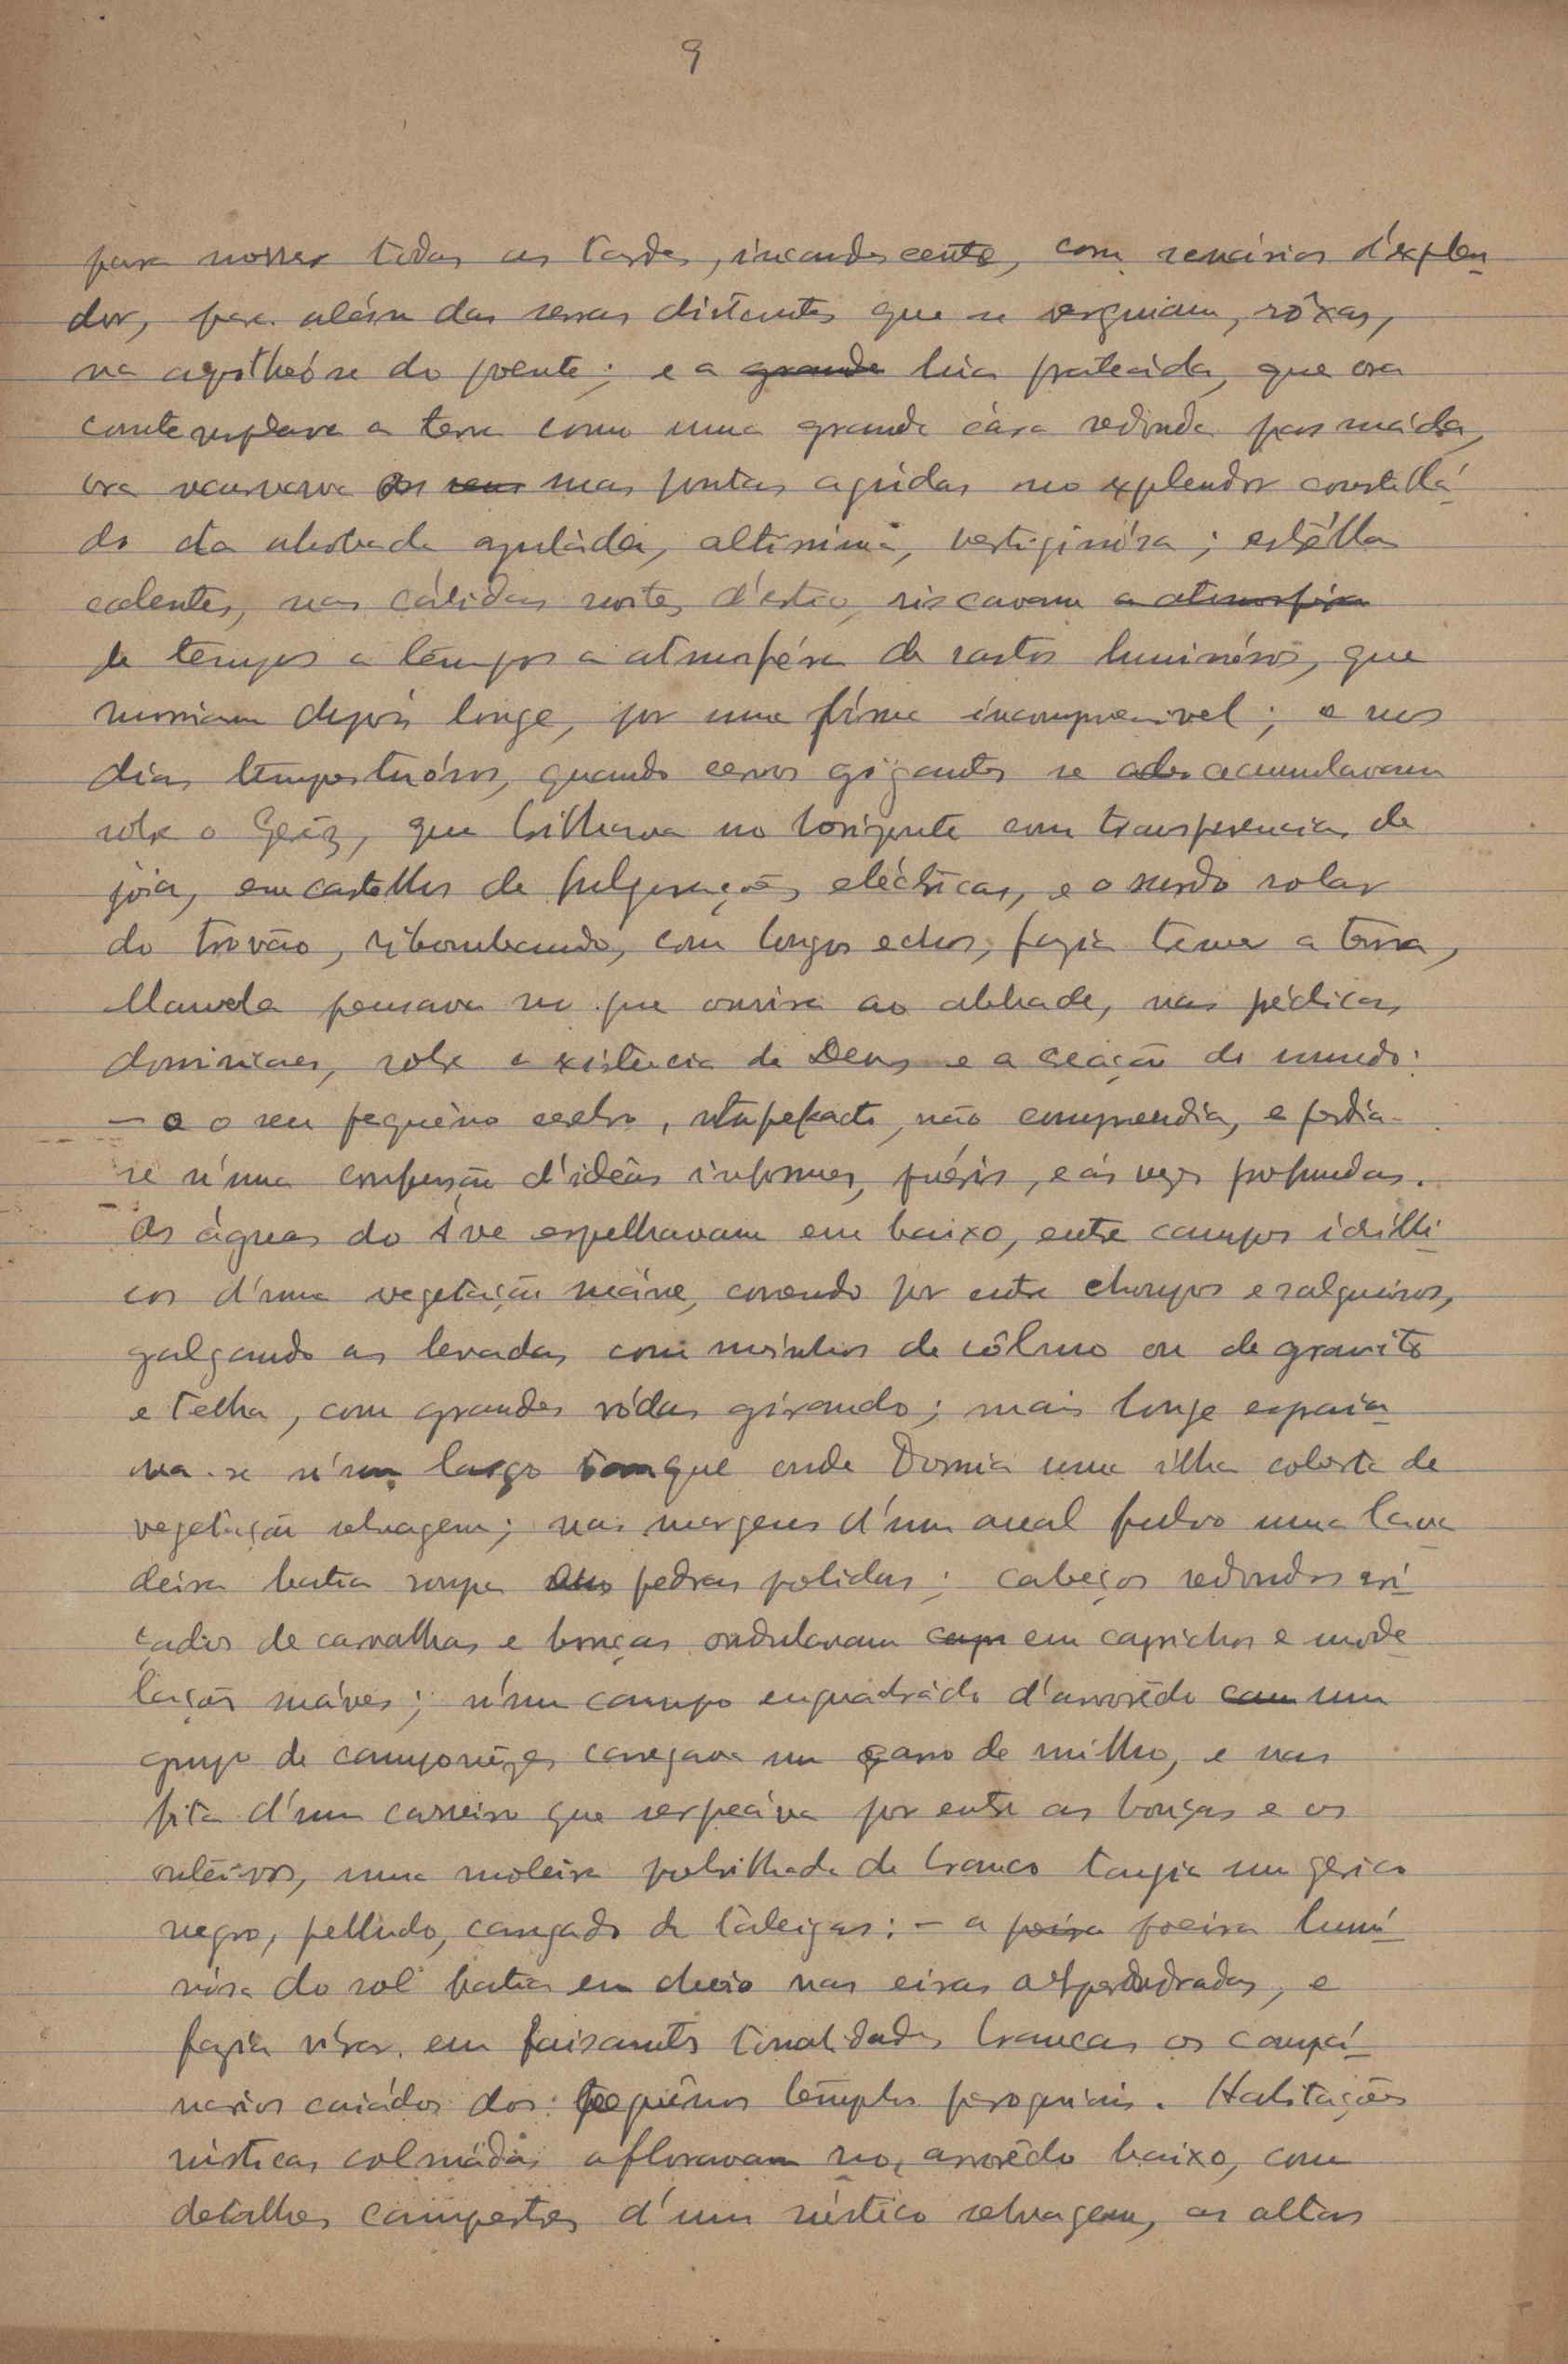 9
para morrer todas as tardes, incandescente, com scenarios d'explen
dor, para além das serras distantes que se erguiam, rôxas,
na apotheóse do poente; e a grande lúa prateáda, que ora
contemplava a terra como uma grande cára redonda pasmáda,
ora recurvava os seus suas pontas agúdas no explendor constellá
do da abobada azuláda, altissima, vertiginósa; estrêllas
cadentes, nas cálidas noites d'estio, riscavam a atmosféra
de tempos a tempos a atmosféra de rastos luminósos, que
morriam depois longe, por uma fórma incomprensivel; e nos
dias tempestuósos, quando cerros gigantes se acumulavam
sobre o Geréz, que brilhava no horisonte com transparencias de
joia, em castellos de fulgurações eléctricas, e o surdo rolar
do trovão, ribombando, com longos echos, fazia tremer a terra,
Manuela pensava no que ouvira ao abbade, nas prédicas
dominicaes, sobre a existencia de Deus e a creação do mundo:
— e o seu pequêno cerebro, stupefacto, não comprendia, e perdia-
se n'uma confusão d'idêas informes, puéris, e ás vezes profundas.
As águas do Áve espelhavam em baixo, entre campos idilli
cos d'uma vegetação suáve, correndo por entre choupos e salgueiros,
galgando as levadas com moínhos de côlmo ou de granito
e telha, com grandes ródas girando; mais longe espraia
va-se n'um largo tanque onde dormia uma ilha coberta de
vegetação selvagem; nas margens d'um areal fulvo uma lava
deira batia roupa nas pedras polidas; cabeços redondos eri
çados de carvalhas e bouças ondulavam cap em caprichos e mode
lações suáves; n'um campo enquadrádo d'arvorêdo cam um
grupo de camponêzes carregava um carro de milho, e nas
fita d'um carreiro que serpeáva por entre as bouças e os
outeiros, uma moleira polvilhada de branco tangia um gerico
negro, pelludo, carregado de taleigas: — a poeira poeira lumi
nósa do sol batia em cheio nas eiras empedradas, e
fazia vibrar em faiscantes tonalidades brancas os campá
narios caiádos dos pequênos templos paroquiais. Habitações
rústicas colmádas afloravam no arvorêdo baixo, com
detalhes campestres d'um rústico selvagem, as altas